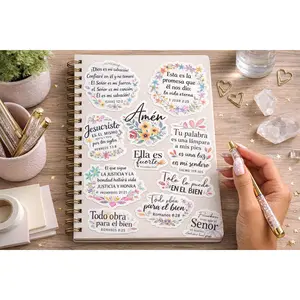 ¡Dios es mi salvación!
Confiaré en él y no temeré.
El Señor es mi fuerza,
el Señor es mi canción
¡Él es mi salvación!
Esta es la
promesa que
él nos dio:
la vida eterna.
1 JUAN 2:25
Amén
Jesucristo
es el mismo
por los siglos.
HEBREOS 13:8
Ella es
fuerte
Tu palabra
es una lámpara
a mis pies;
es una luz
en mi sendero
El que sigue
LA JUSTICIA Y LA
bondad hallará vida
JUSTICIA Y HONRA
PROVERBIOS 21:21
Todo obra
para el bien
ROMANOS 8:28
Todo obra
para el bien
Romanos 8:28
Todo lo puedo
EN EL BIEN
Señor